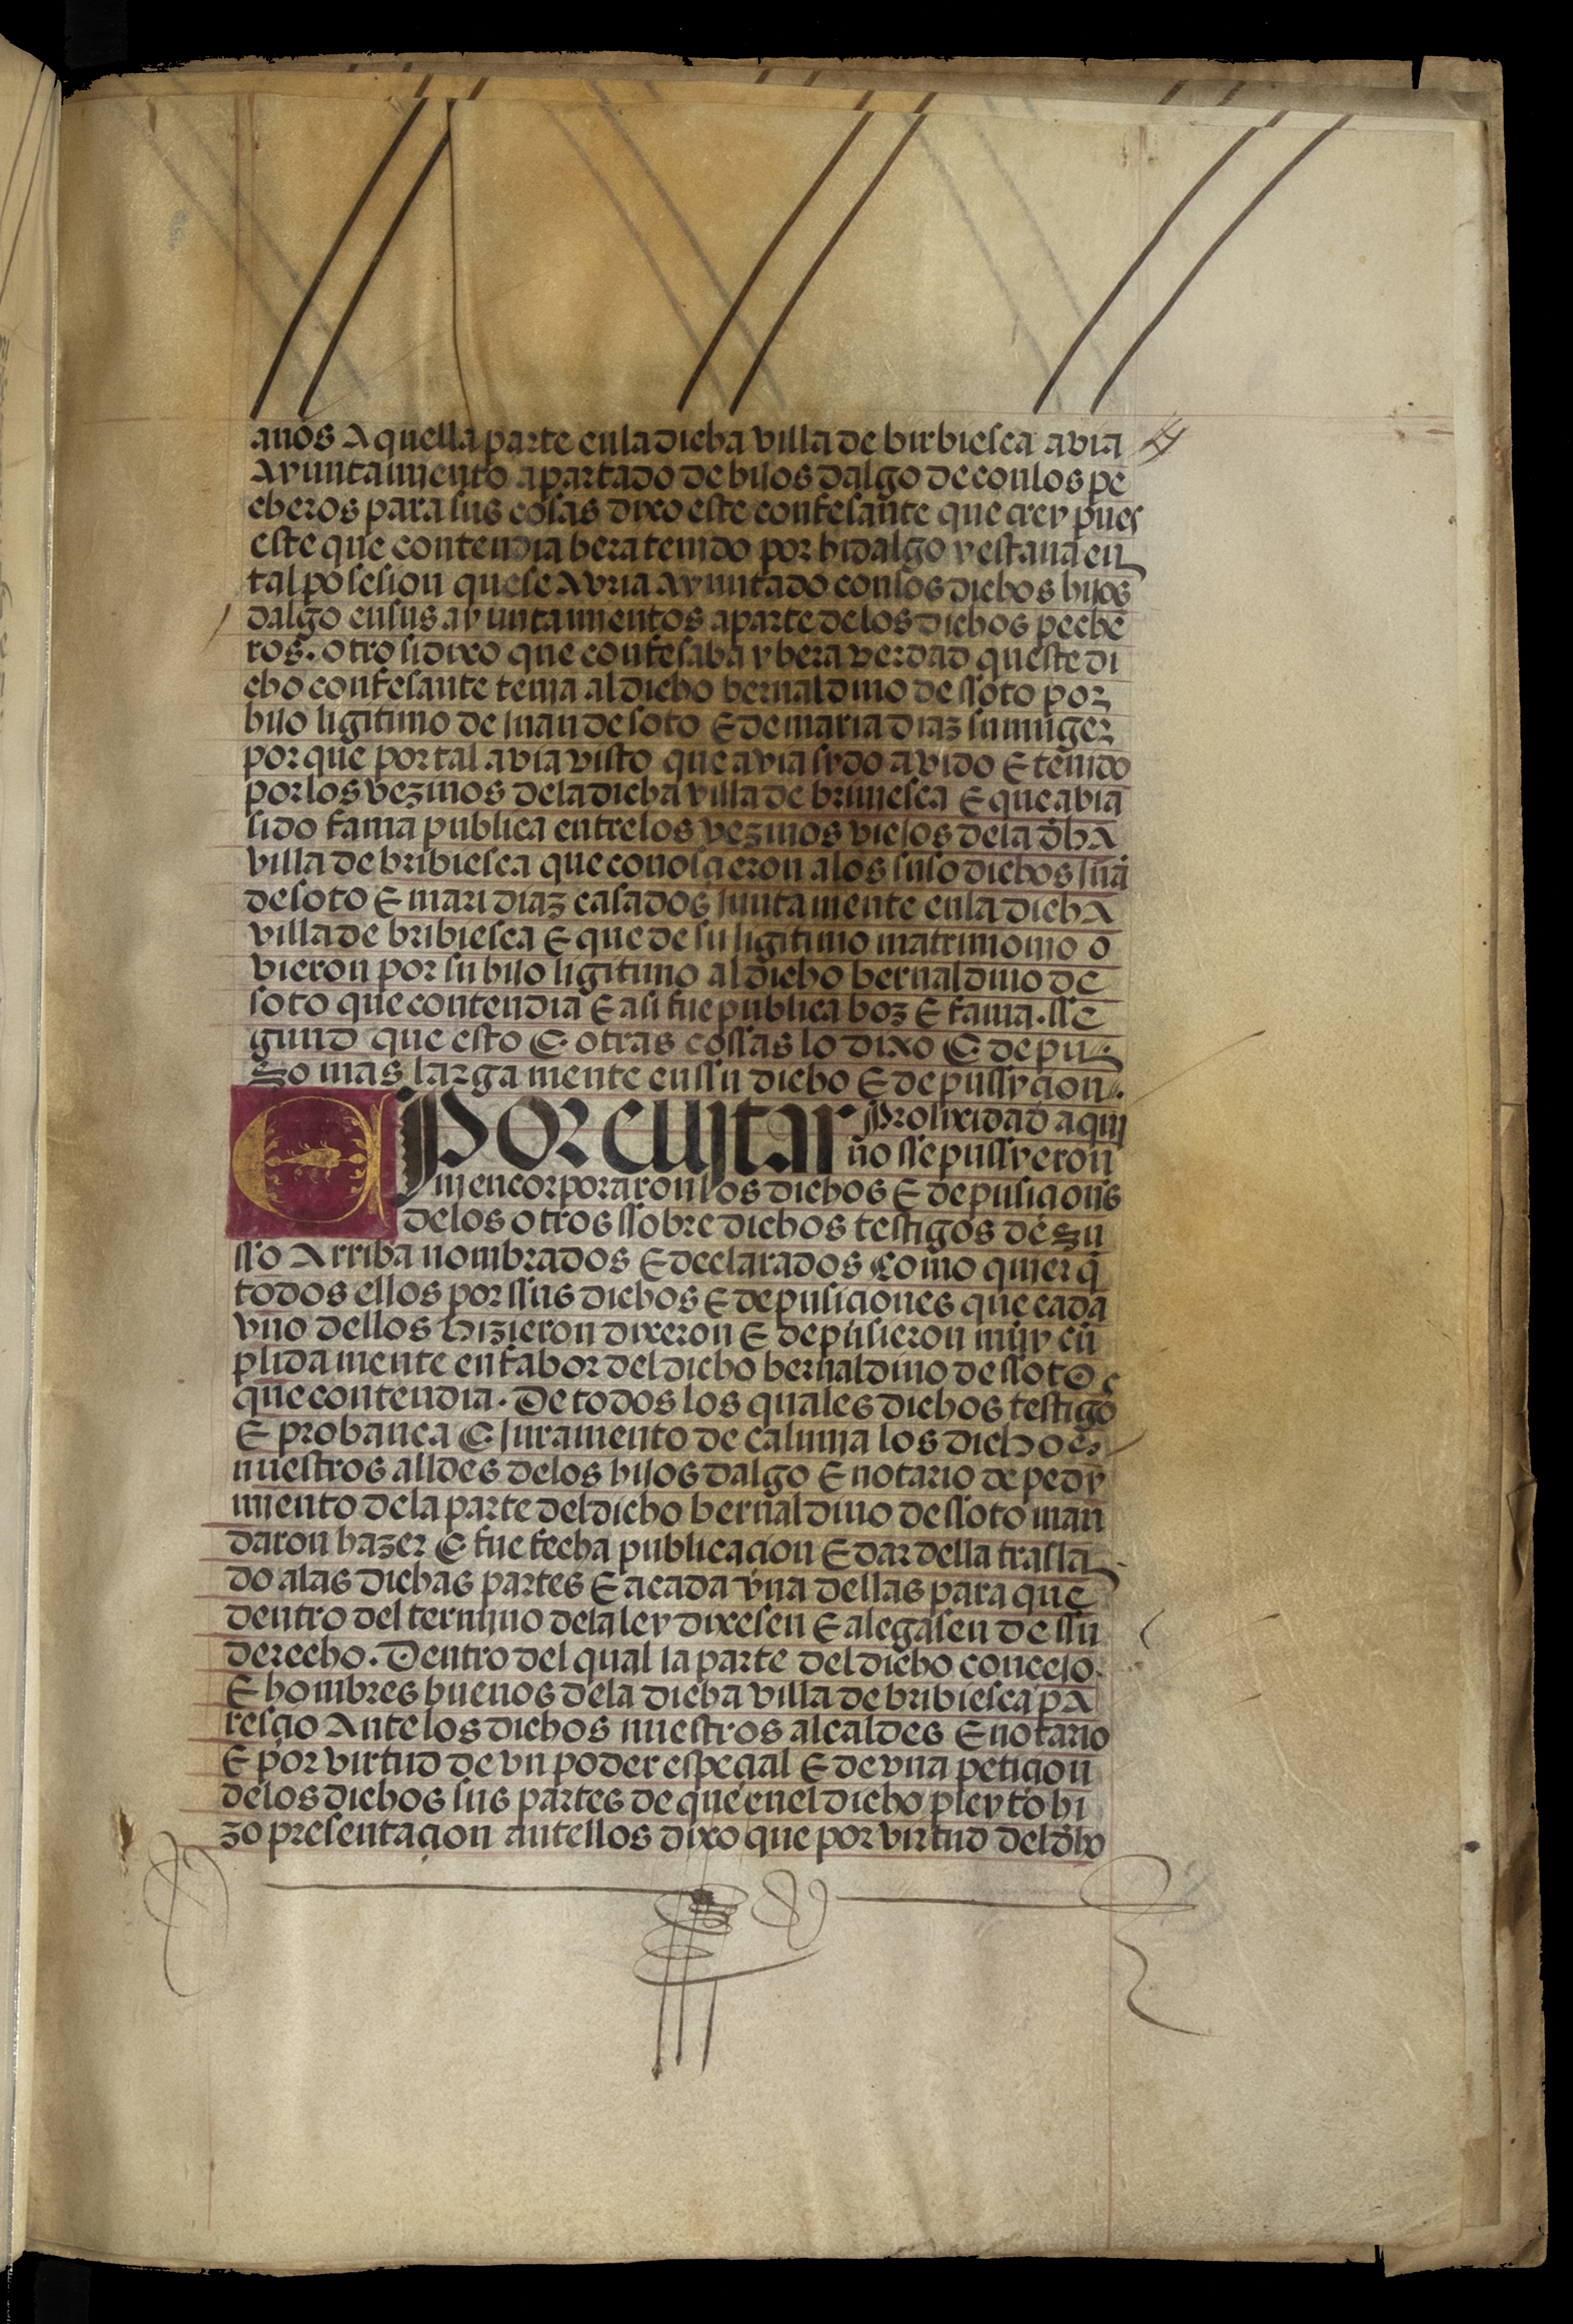 años A quella parte enla dicha villa de birbiesca avia
Ayuntamiento apartado de hijos dalgo de con los pe
cheros para sus cosas dixo este confesante que crey pues
este que contendia hera tenido por hidalgo y estaua en
tal posesion que se Avria Ayuntado con los dichos hijos
dalgo en sus ayuntamientos aparte delos dichos peche
ros. otro si dixo que confesaba y hera verdad queste di
cho confesante tenia al dicho bernaldino de ssoto por
hijo ligitimo de juan de soto E de maria diaz su muger
por que por tal avia visto que avia sydo avido E tenido
por los vezinos dela dicha villa de briuiesca E que abia
sido fama publica entre los vezinos viejos dela dħa
villa de bribiesca que conosçieron alos suso dichos juā
de soto E mari diaz casados juntamente enla dicha
villa de bribiesca E que de su ligitimo matrimonio o
vieron por su hijo ligitimo al dicho bernaldino de
soto que contendia E asi fue publica boz E fama. sse
gund que esto E otras cossas lo dixo E depu
so mas larga mente en ssu dicho E depussyçion.
E Por euitar Prolixidad aqui
no sse pussyeron
ni encorporaron los dichos E depusiçions
delos otros ssobre dichos testigos de su
sso Arriba nombrados E declarados Como quier q̄
todos ellos por ssus dichos E depusiçiones que cada
vno dellos hizieron dixeron E depusieron muy cū
plida mente en fabor del dicho bernaldino de ssoto
que contendia. De todos los quales dichos testigos
E probança E juramento de calunia los dichos
nuestros alldes delos hijos dalgo E notario de pedy
miento dela parte del dicho bernaldino de ssoto man
daron hazer E fue fecha publicaçion E dar della trasla
do alas dichas partes E a cada vna dellas para que
dentro del termino dela ley dixesen E alegasen de ssu
derecho. Dentro del qual la parte del dicho conçejo
E hombres buenos dela dicha villa de bribiesca pa
resçio Ante los dichos nuestros alcaldes E notario
E por virtud de vn poder espeçial E de vna petiçion
delos dichos sus partes de que enel dicho pleyto hi
zo presentaçion antellos dixo que por virtud del dħo